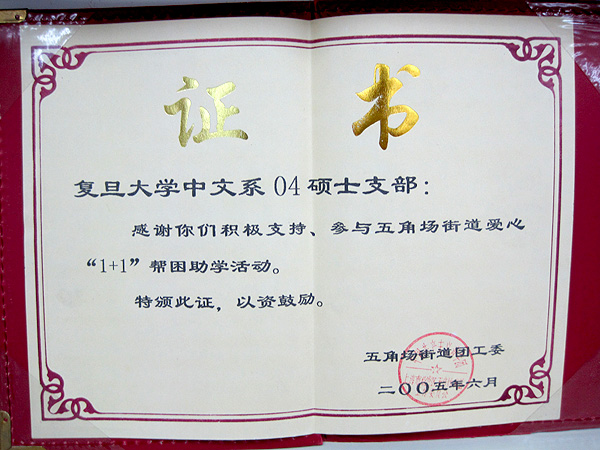 证书
复旦大学中文系 04 硕士支部：
感谢你们积极支持、参与五角场街道爱心
“1+1”帮困助学活动。
特颁此证，以资鼓励。
五角场街道团工委
二〇〇五年六月